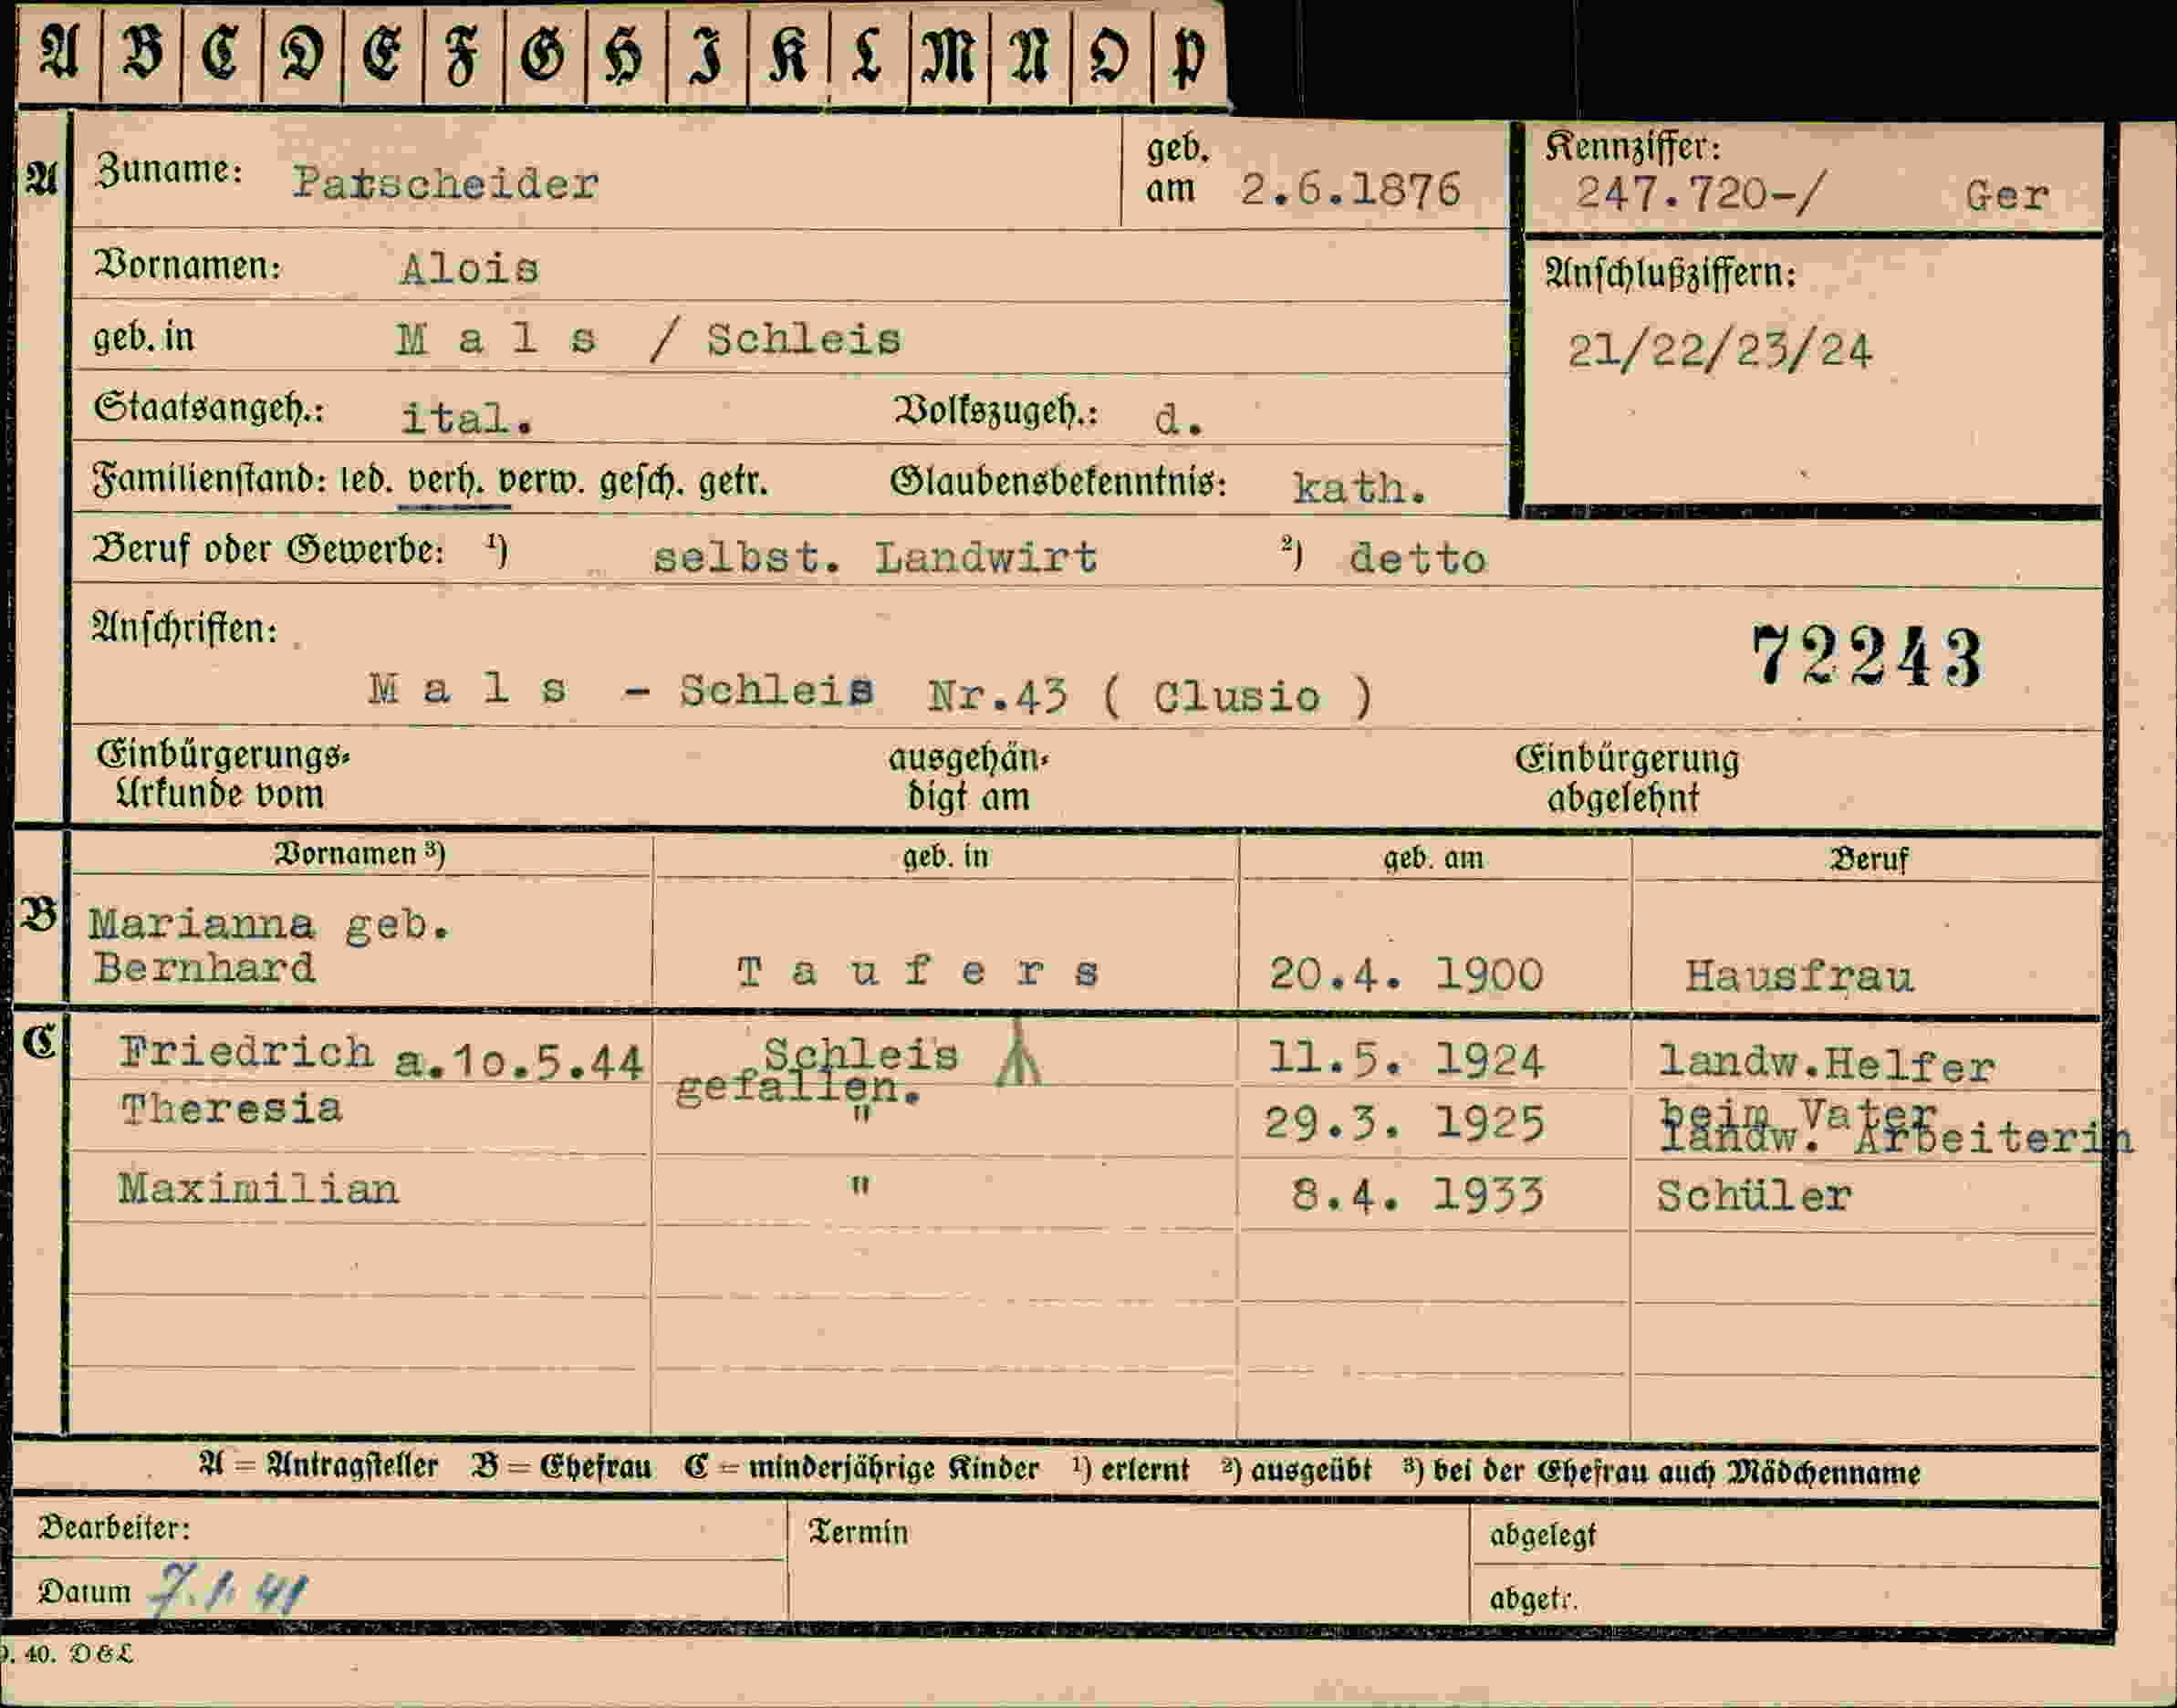 A B C D E F G H I K L M N O P
A Zuname: Patscheider geb. am 2.6.1876 Kennziffer: 247.720-/ Ger
Vornamen: Alois
Anschlußziffern:
geb. in M a l s / Schleis
21/22/23/24
Staatsangeh.: ital. Volkszugeh.: d.
Familienstand: led. verh. verw. gesch. getr. Glaubensbekenntnis: kath.
Beruf oder Gewerbe: ¹) selbst. Landwirt ²) detto
Anschriften:
72243
M a l s - Schleis Nr.43 ( Clusio )
Einbürgerungs- ausgehän- Einbürgerung
Urkunde vom digt am abgelehnt
Vornamen ³) geb. in geb. am Beruf
B Marianna geb.
Bernhard T a u f e r s 20.4. 1900 Hausfrau
C Friedrich a.10.5.44 Schleis 11.5. 1924 landw.Helfer
gefallen. beim Vater
Theresia " 29.3. 1925 landw. Arbeiterin
Maximilian " 8.4. 1933 Schüler
A = Antragsteller B = Ehefrau C = minderjährige Kinder ¹) erlernt ²) ausgeübt ³) bei der Ehefrau auch Mädchenname
Bearbeiter: Termin abgelegt
Datum 7.1.41 abgetr.
. 40. D&L